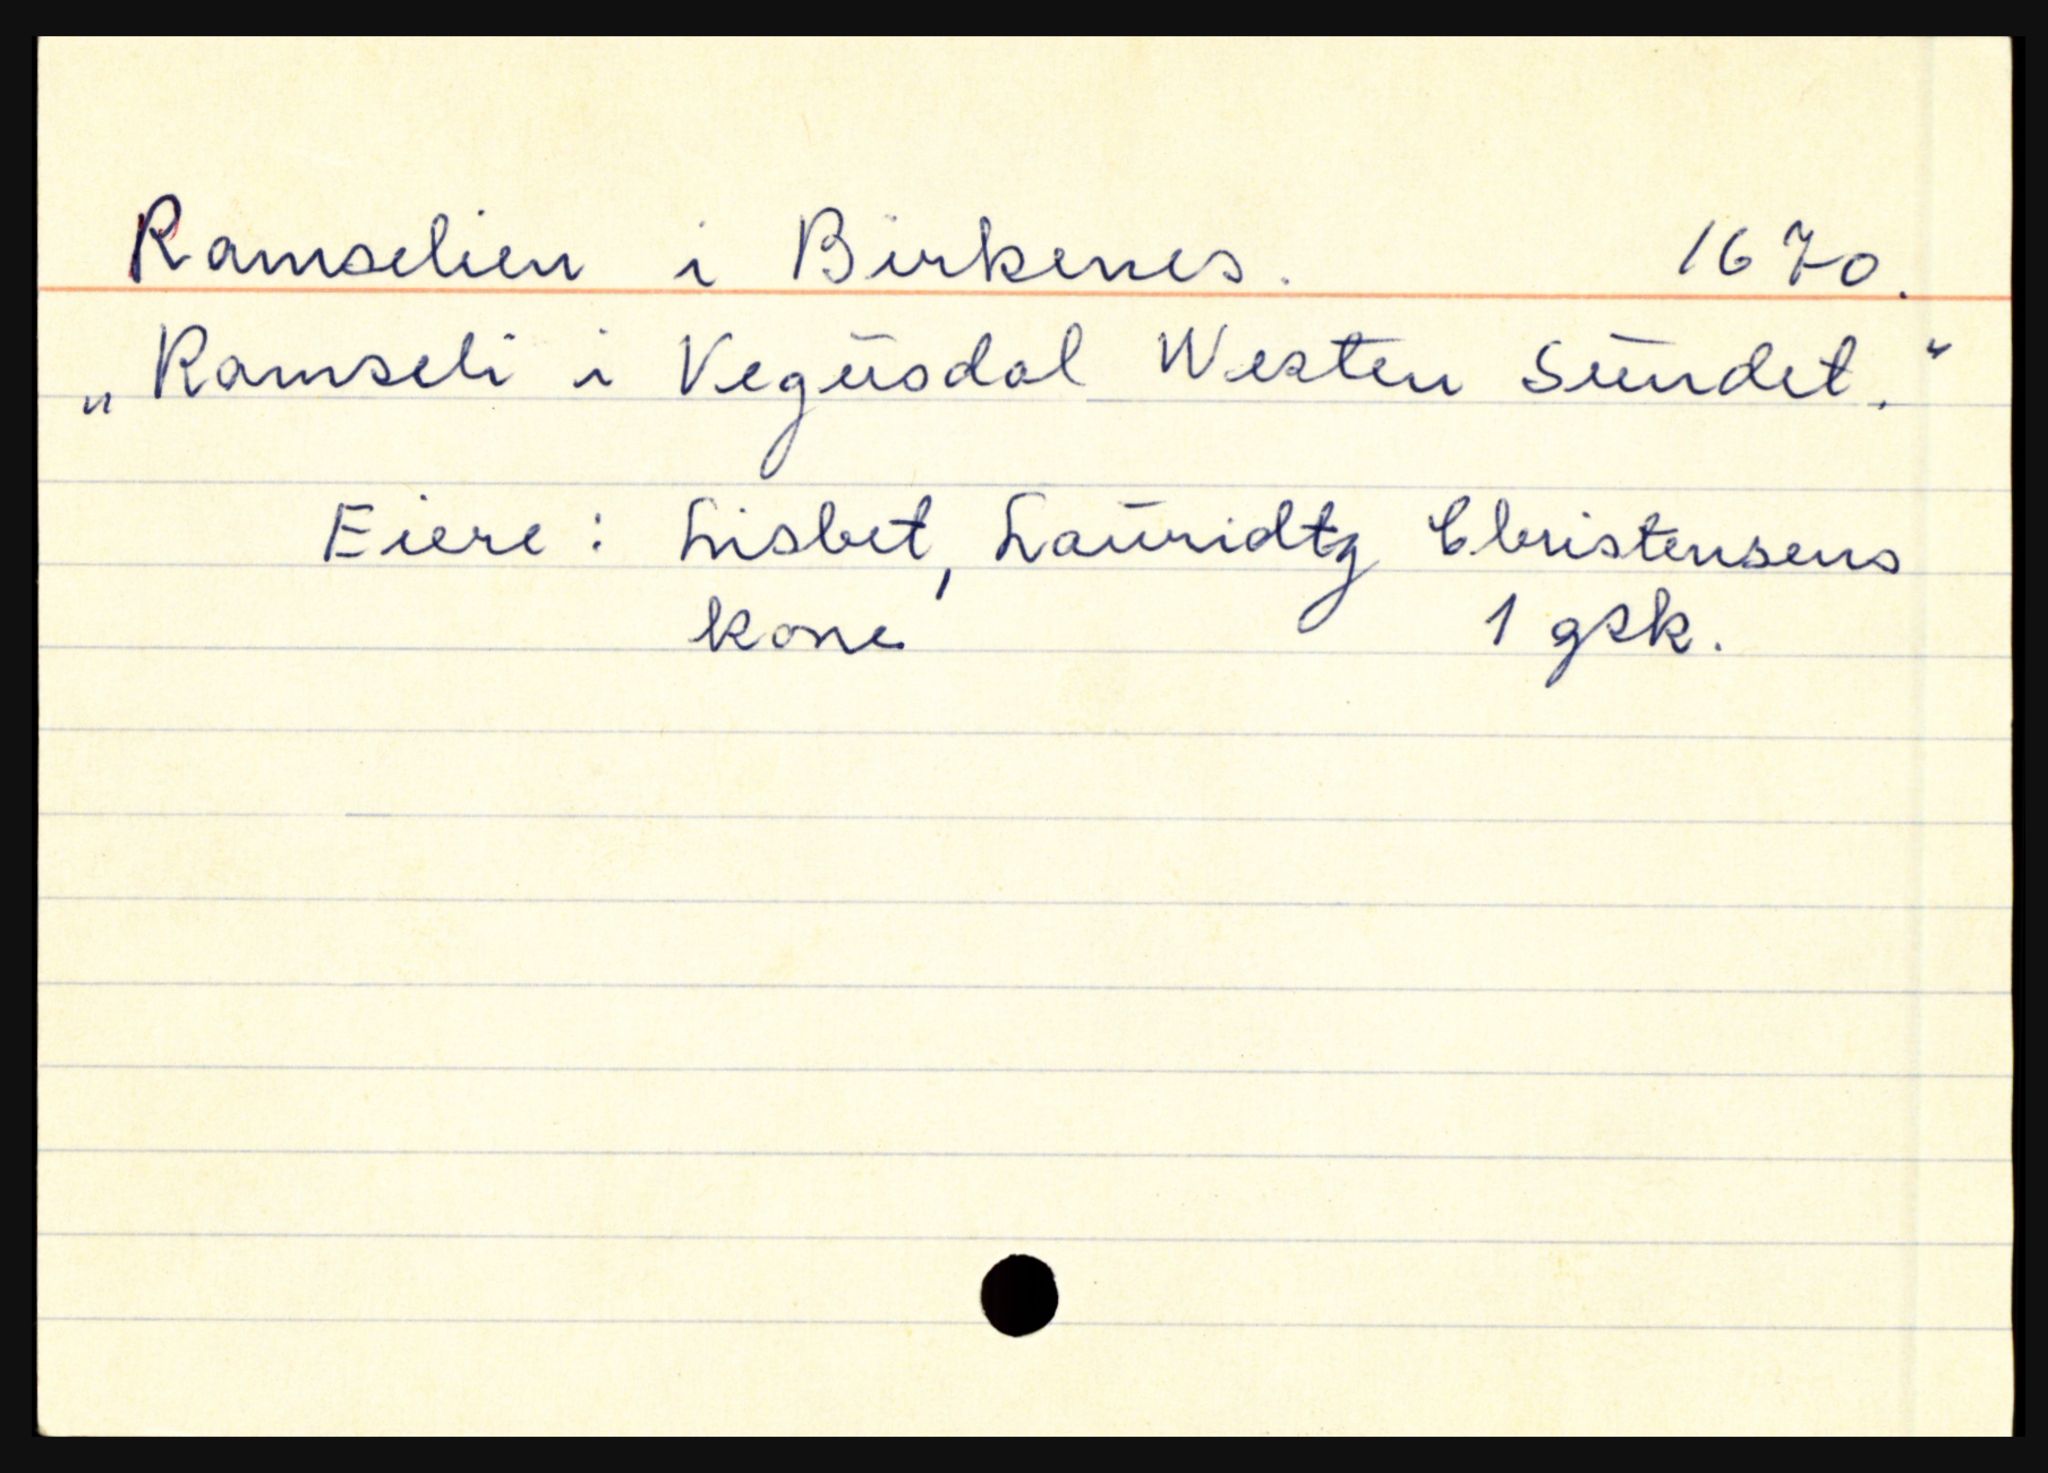 Ramselien i Birkenes. 1670.
„Ramseli i Vegüsdal Westen Sündet."
Eiere: Lisbet, Laüridtz Christensens
kone 1 gsk.